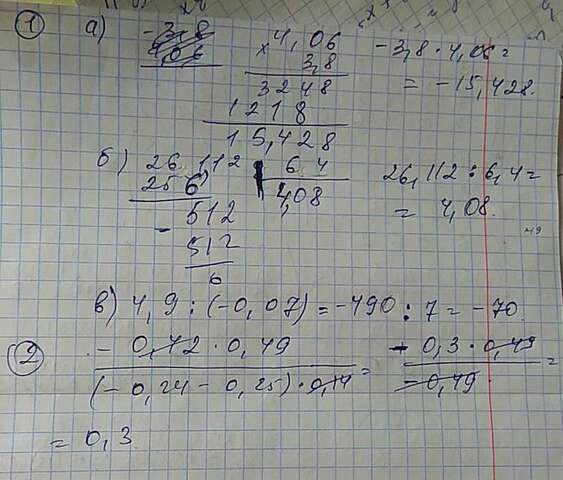 ① а) -3,8 4,06 × 4,06 3,8 3248 1218 15,428 -3,8 · 4,06 =
= -15,428.
б) 26,112 | 6,4 26,112 : 6,4 =
256 4,08 = 4,08.
- 512
512
0
в) 4,9 : (-0,07) = -490 : 7 = -70.
② - 0,42 · 0,49 / (-0,24 - 0,25) · 0,14 = - 0,3 · 0,49 / - 0,49 =
= 0,3